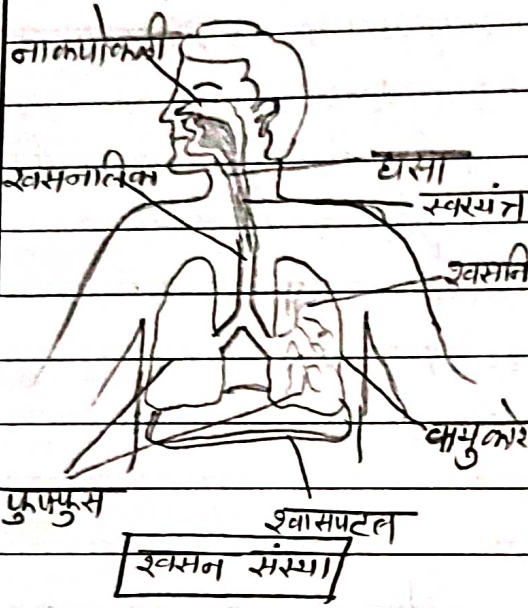 नाकपोकळी
श्वसनलिका
घसा
स्वरयंत्र
श्वसनि
वायुकोश
फुफ्फुस
श्वासपटल
श्वसन संस्था